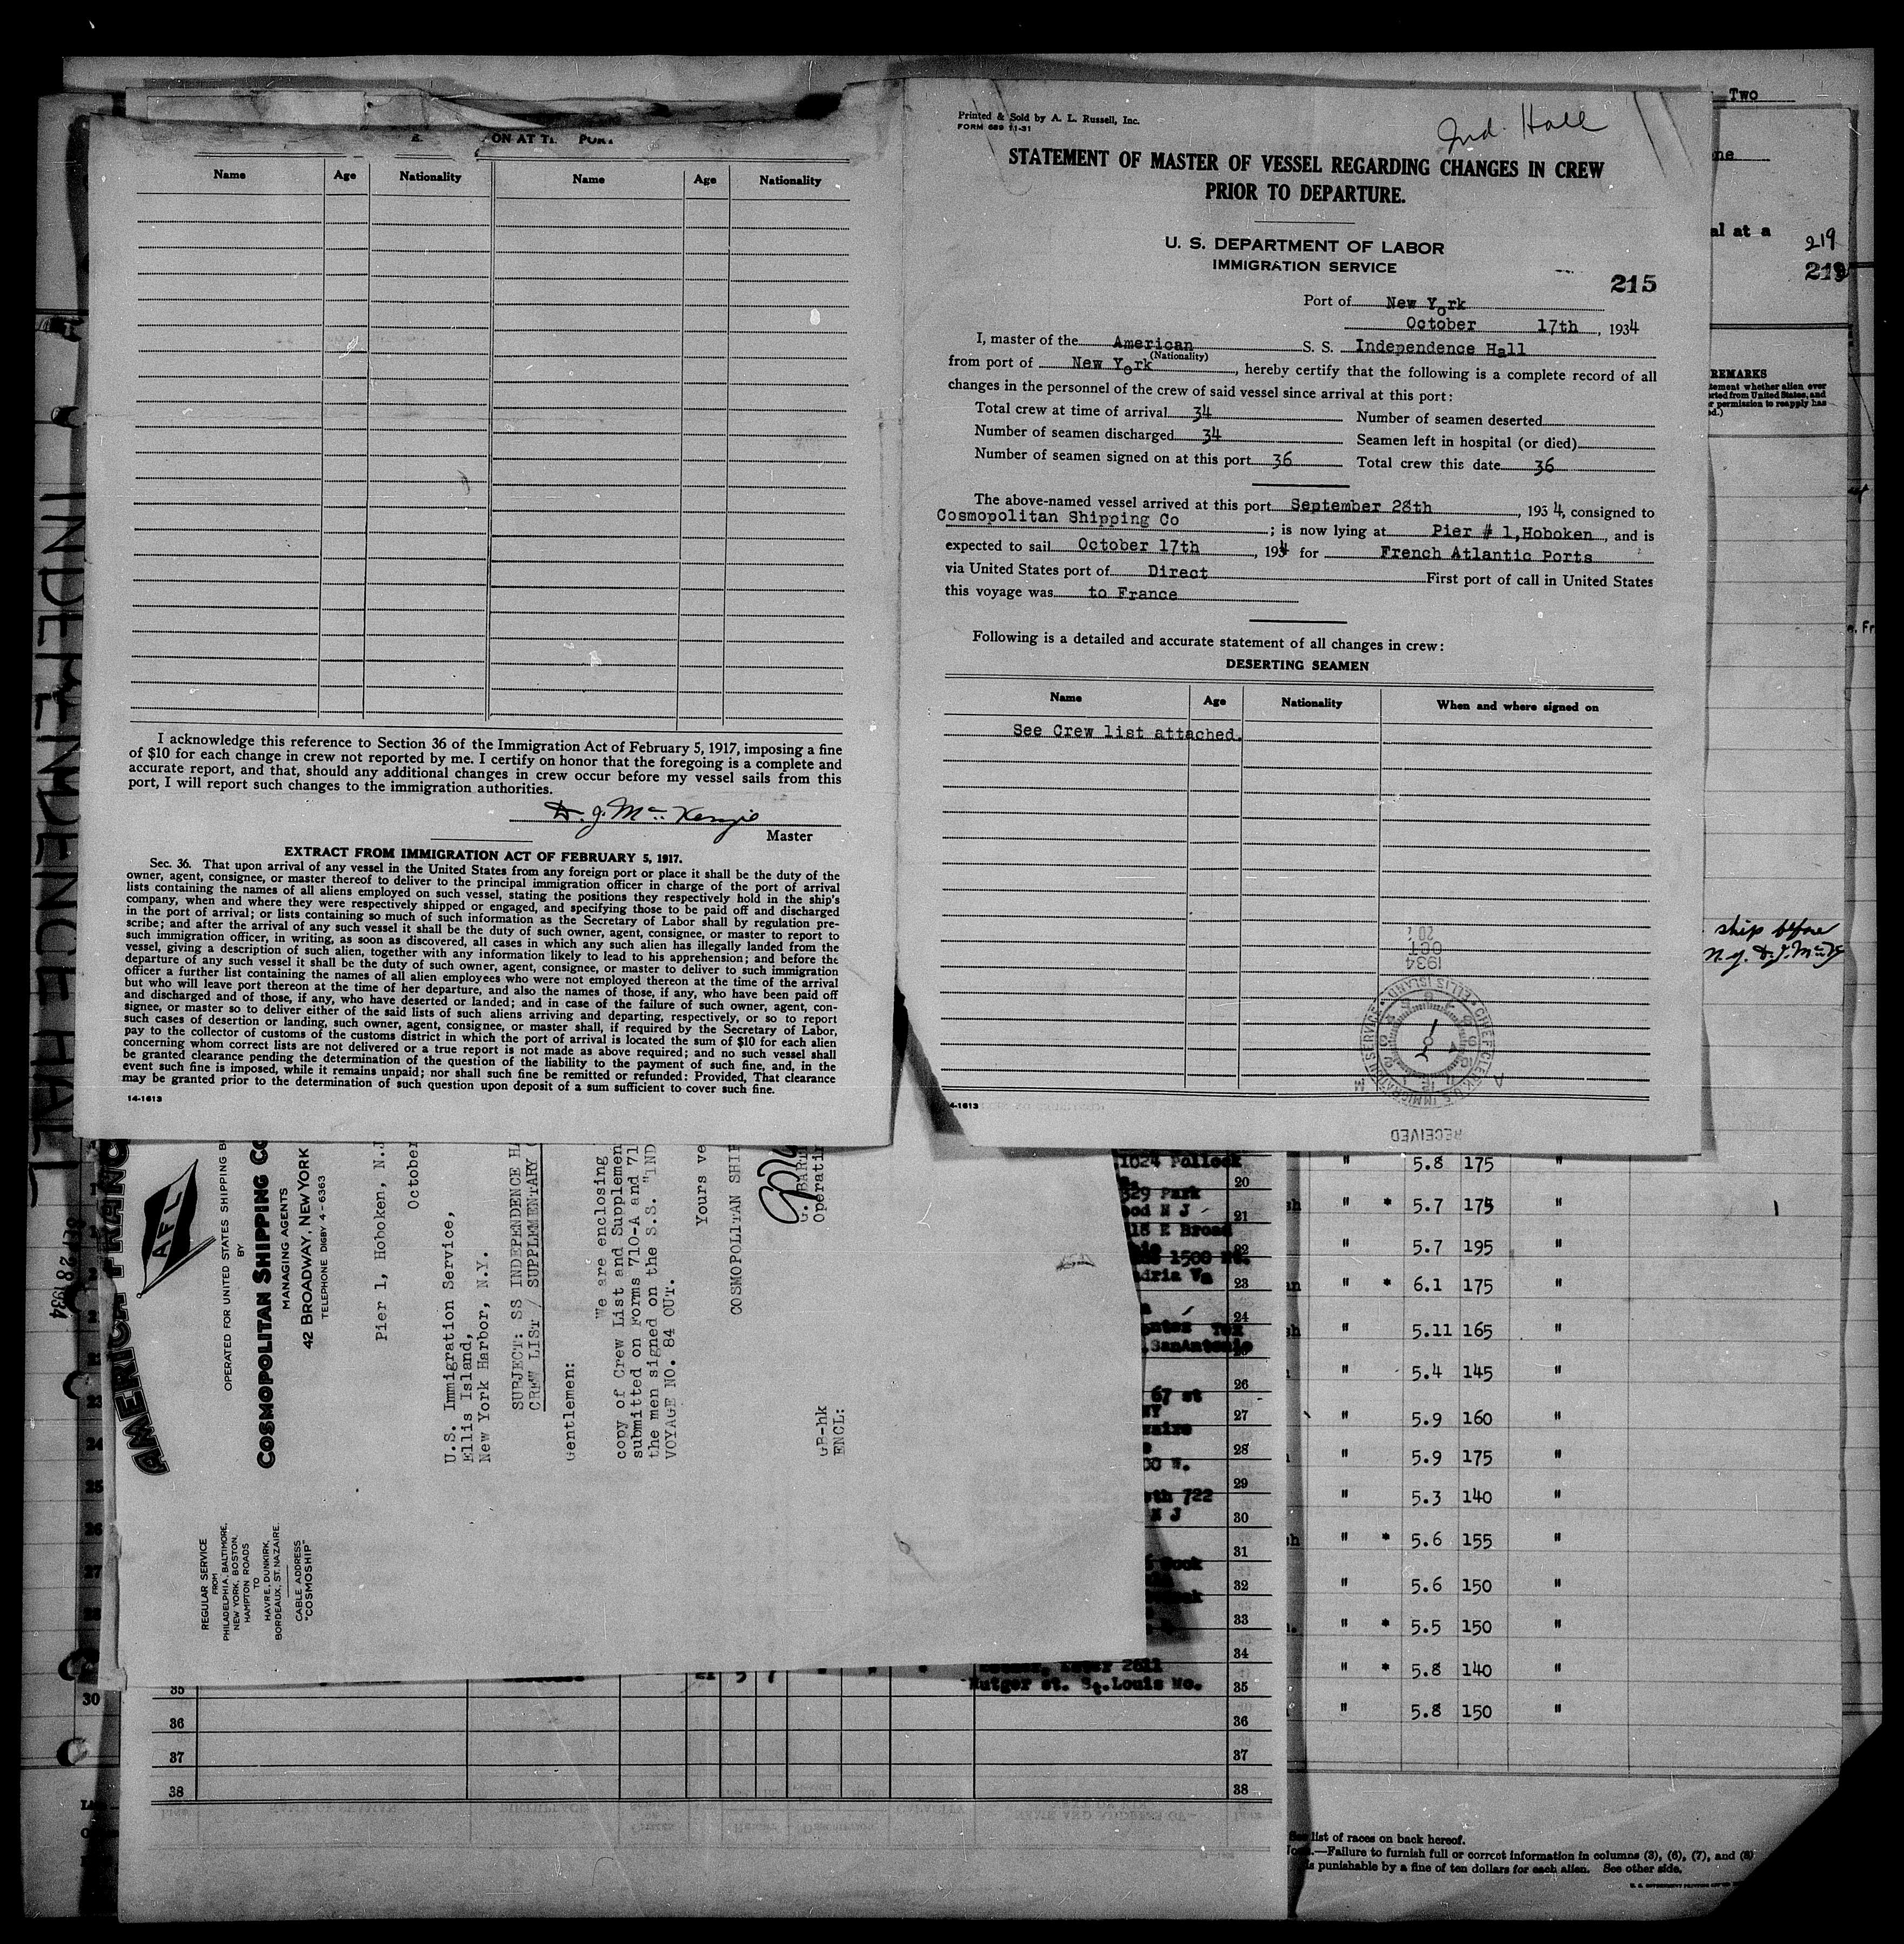 ON AT THE PORT
Name Age Nationality Name Age Nationality
I acknowledge this reference to Section 36 of the Immigration Act of February 5, 1917, imposing a fine
of $10 for each change in crew not reported by me. I certify on honor that the foregoing is a complete and
accurate report, and that, should any additional changes in crew occur before my vessel sails from this
port, I will report such changes to the immigration authorities.
D. J. McKenzie
Master
EXTRACT FROM IMMIGRATION ACT OF FEBRUARY 5, 1917.
Sec. 36. That upon arrival of any vessel in the United States from any foreign port or place it shall be the duty of the
owner, agent, consignee, or master thereof to deliver to the principal immigration officer in charge of the port of arrival
lists containing the names of all aliens employed on such vessel, stating the positions they respectively hold in the ship's
company, when and where they were respectively shipped or engaged, and specifying those to be paid off and discharged
in the port of arrival; or lists containing so much of such information as the Secretary of Labor shall by regulation pre-
scribe; and after the arrival of any such vessel it shall be the duty of such owner, agent, consignee, or master to report to
such immigration officer, in writing, as soon as discovered, all cases in which any such alien has illegally landed from the
vessel, giving a description of such alien, together with any information likely to lead to his apprehension; and before the
departure of any such vessel it shall be the duty of such owner, agent, consignee, or master to deliver to such immigration
officer a further list containing the names of all alien employees who were not employed thereon at the time of the arrival
but who will leave port thereon at the time of her departure, and also the names of those, if any, who have been paid off
and discharged and of those, if any, who have deserted or landed; and in case of the failure of such owner, agent, con-
signee, or master so to deliver either of the said lists of such aliens arriving and departing, respectively, or so to report
such cases of desertion or landing, such owner, agent, consignee, or master shall, if required by the Secretary of Labor,
pay to the collector of customs of the customs district in which the port of arrival is located the sum of $10 for each alien
concerning whom correct lists are not delivered or a true report is not made as above required; and no such vessel shall
be granted clearance pending the determination of the question of the liability to the payment of such fine, and, in the
event such fine is imposed, while it remains unpaid; nor shall such fine be remitted or refunded: Provided, That clearance
may be granted prior to the determination of such question upon deposit of a sum sufficient to cover such fine.
14-1613
Printed & Sold by A. L. Russell, Inc.
FORM 689 11-31
Ind. Hall
STATEMENT OF MASTER OF VESSEL REGARDING CHANGES IN CREW
PRIOR TO DEPARTURE.
U. S. DEPARTMENT OF LABOR
IMMIGRATION SERVICE
215
Port of New York
October 17th, 1934
I, master of the American S. S. Independence Hall
(Nationality)
from port of New York, hereby certify that the following is a complete record of all
changes in the personnel of the crew of said vessel since arrival at this port:
Total crew at time of arrival 34 Number of seamen deserted
Number of seamen discharged 34 Seamen left in hospital (or died)
Number of seamen signed on at this port 36 Total crew this date 36
The above-named vessel arrived at this port September 28th, 1934, consigned to
Cosmopolitan Shipping Co; is now lying at Pier # 1,Hoboken, and is
expected to sail October 17th, 1934 for French Atlantic Ports
via United States port of Direct First port of call in United States
this voyage was to France
Following is a detailed and accurate statement of all changes in crew:
DESERTING SEAMEN
Name Age Nationality When and where signed on
See Crew list attached.
1934
OCT
20
CHIEF CLERK U.S. IMMIGRATION SERVICE ELLIS ISLAND
RECEIVED
4-1613
Two
ne
al at a
219
219
REMARKS
tement whether alien ever
rted from United States, and
r permission to reapply has
ed.)
ship before
N.Y. D.J. McK
INDEPENDENCE HALL
SEP 28 1934
AMERICA FRANC
AFL
OPERATED FOR UNITED STATES SHIPPING B
BY
COSMOPOLITAN SHIPPING CO
MANAGING AGENTS
42 BROADWAY, NEW YORK
TELEPHONE DIGBY 4-6363
REGULAR SERVICE
FROM
PHILADELPHIA, BALTIMORE,
NEW YORK, BOSTON,
HAMPTON ROADS
TO
HAVRE, DUNKIRK,
BORDEAUX, ST. NAZAIRE.
CABLE ADDRESS
"COSMOSHIP"
Pier 1, Hoboken, N.J
October
U.S. Immigration Service,
Ellis Island,
New York Harbor, N.Y.
SUBJECT: SS INDEPENDENCE HA
CREW LIST / SUPPLEMENTARY
Gentlemen:
We are enclosing
copy of Crew List and Supplemen
submitted on Forms 710-A and 71
the men signed on the S.S. "IND
VOYAGE NO. 84 OUT.
Yours ve
COSMOPOLITAN SHIP
G. BAR
Operatin
GB-hk
ENCL:
1024 Pollock
20
329 Park
ood N J 21
18 E Broad
22
1500
dria Va 23
24
Tex
SanAntonio
67 st 26
NY 27
28
00 W.
29
th 722
N J 30
31
32
33
34
2611
35 Rutger st. St.Louis Mo. 35
36 36
37 37
38 38
" 5.8 175 "
sh " * 5.7 175 "
" 5.7 195 "
n " * 6.1 175 "
sh " 5.11 165 "
" 5.4 145 "
" 5.9 160 "
" 5.9 175 "
" 5.3 140 "
sh " * 5.6 155 "
" 5.6 150 "
" * 5.5 150 "
" * 5.8 140 "
" 5.8 150 "
23
24
25
26
27
30
See list of races on back hereof.
—Failure to furnish full or correct information in columns (3), (6), (7), and (8)
is punishable by a fine of ten dollars for each alien. See other side.